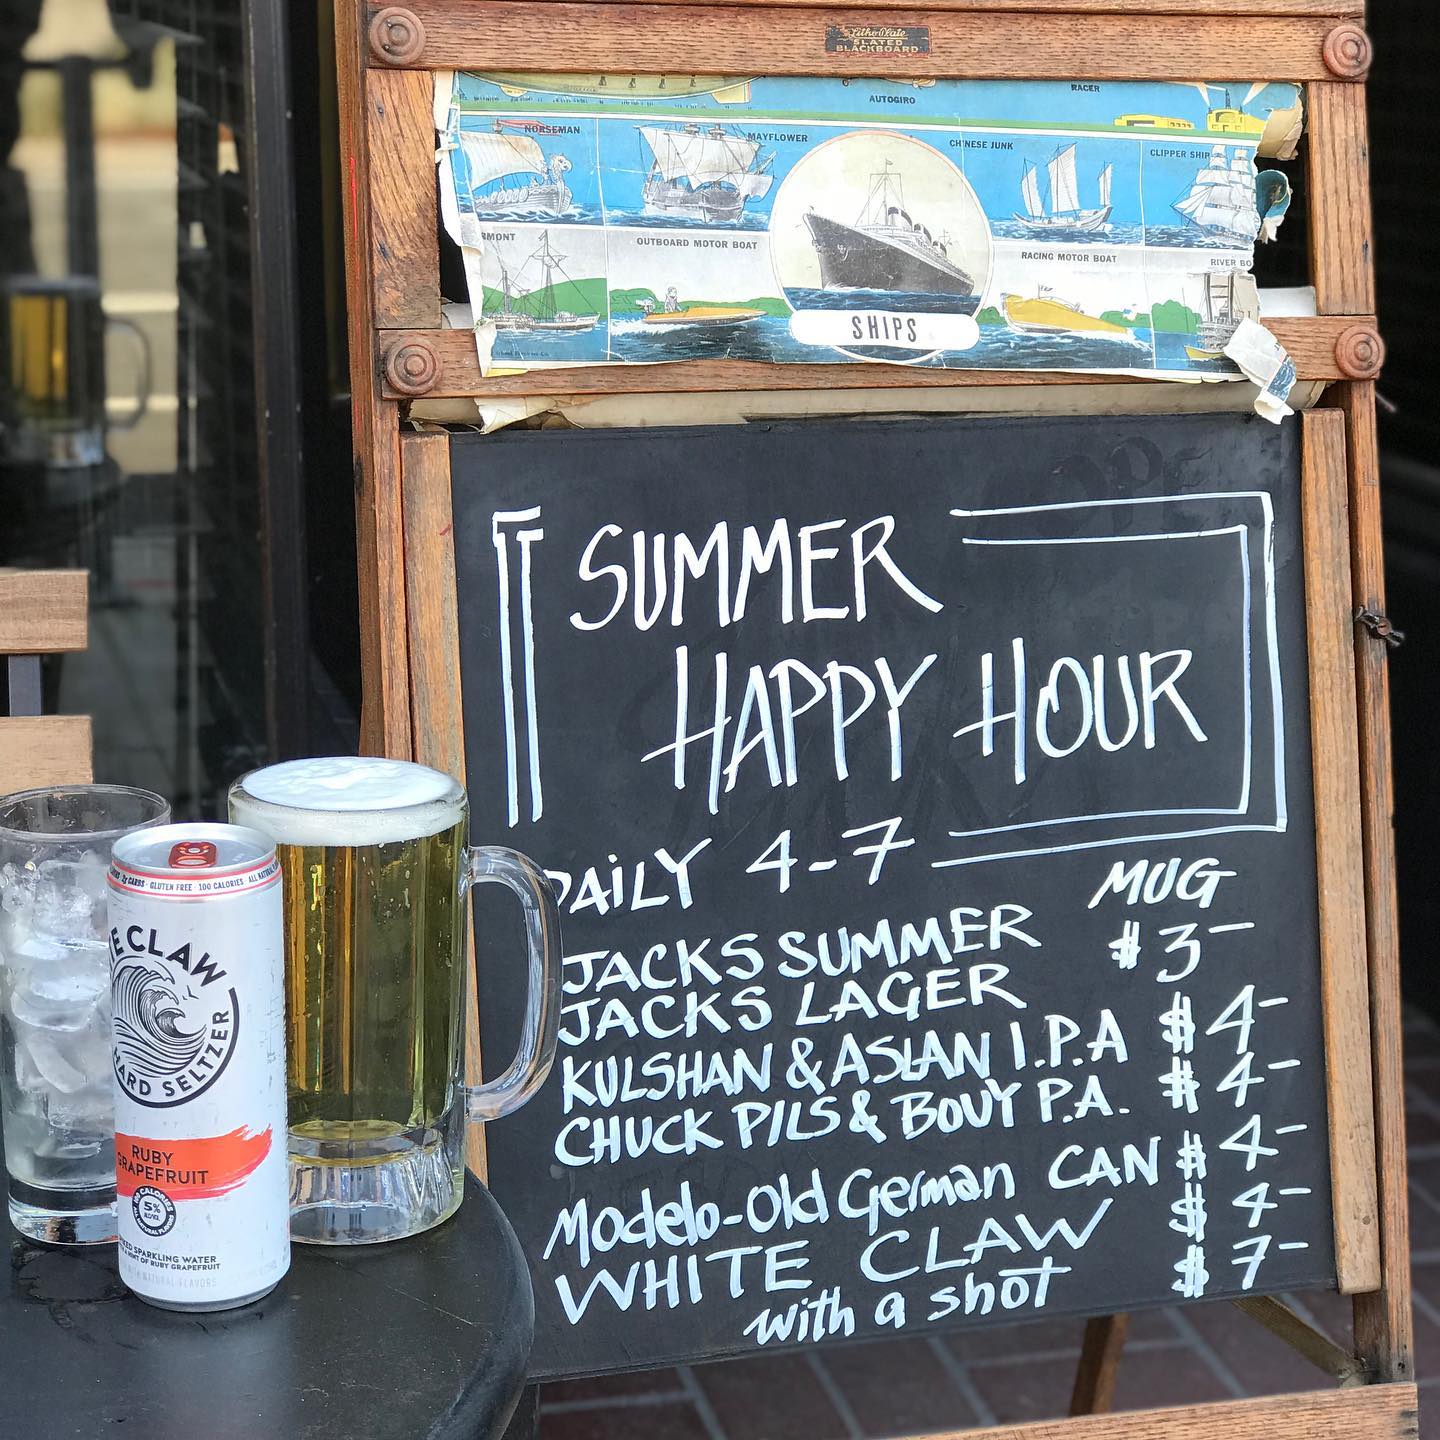 Litho Plate
SLATED
BLACKBOARD
AUTOGIRO
RACER
NORSEMAN
MAYFLOWER
CHINESE JUNK
CLIPPER SHIP
RMONT
OUTBOARD MOTOR BOAT
RACING MOTOR BOAT
RIVER BO
SHIPS
SUMMER
HAPPY HOUR
DAiLY 4-7
MUG
JACKS SUMMER $3-
JACKS LAGER $4-
KULSHAN & ASLAN I.P.A $4-
CHUCK PILS & BOUY P.A. $4-
Modelo-Old German CAN $4-
WHITE CLAW $7-
with a shot
2g CARBS · GLUTEN FREE · 100 CALORIES ALL NATURAL
E CLAW
HARD SELTZER
RUBY
GRAPEFRUIT
100 CALORIES
5%
ALC/VOL
SPARKLING WATER
A HINT OF RUBY GRAPEFRUIT
WITH NATURAL FLAVORS